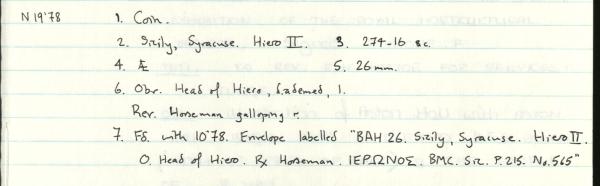 N 19'78 1. Coin.
2. Sicily, Syracuse. Hiero II. 3. 274-16 BC.
4. Æ 5. 26 mm.
6. Obv. Head of Hiero, diademed, l.
Rev. Horseman galloping r.
7. Fd. with 10'78. Envelope labelled "BAH 26. Sicily, Syracuse. Hiero II.
O. Head of Hiero. Rx Horseman. ΙΕΡΩΝΟΣ. BMC. Sic. P.215. No.565"